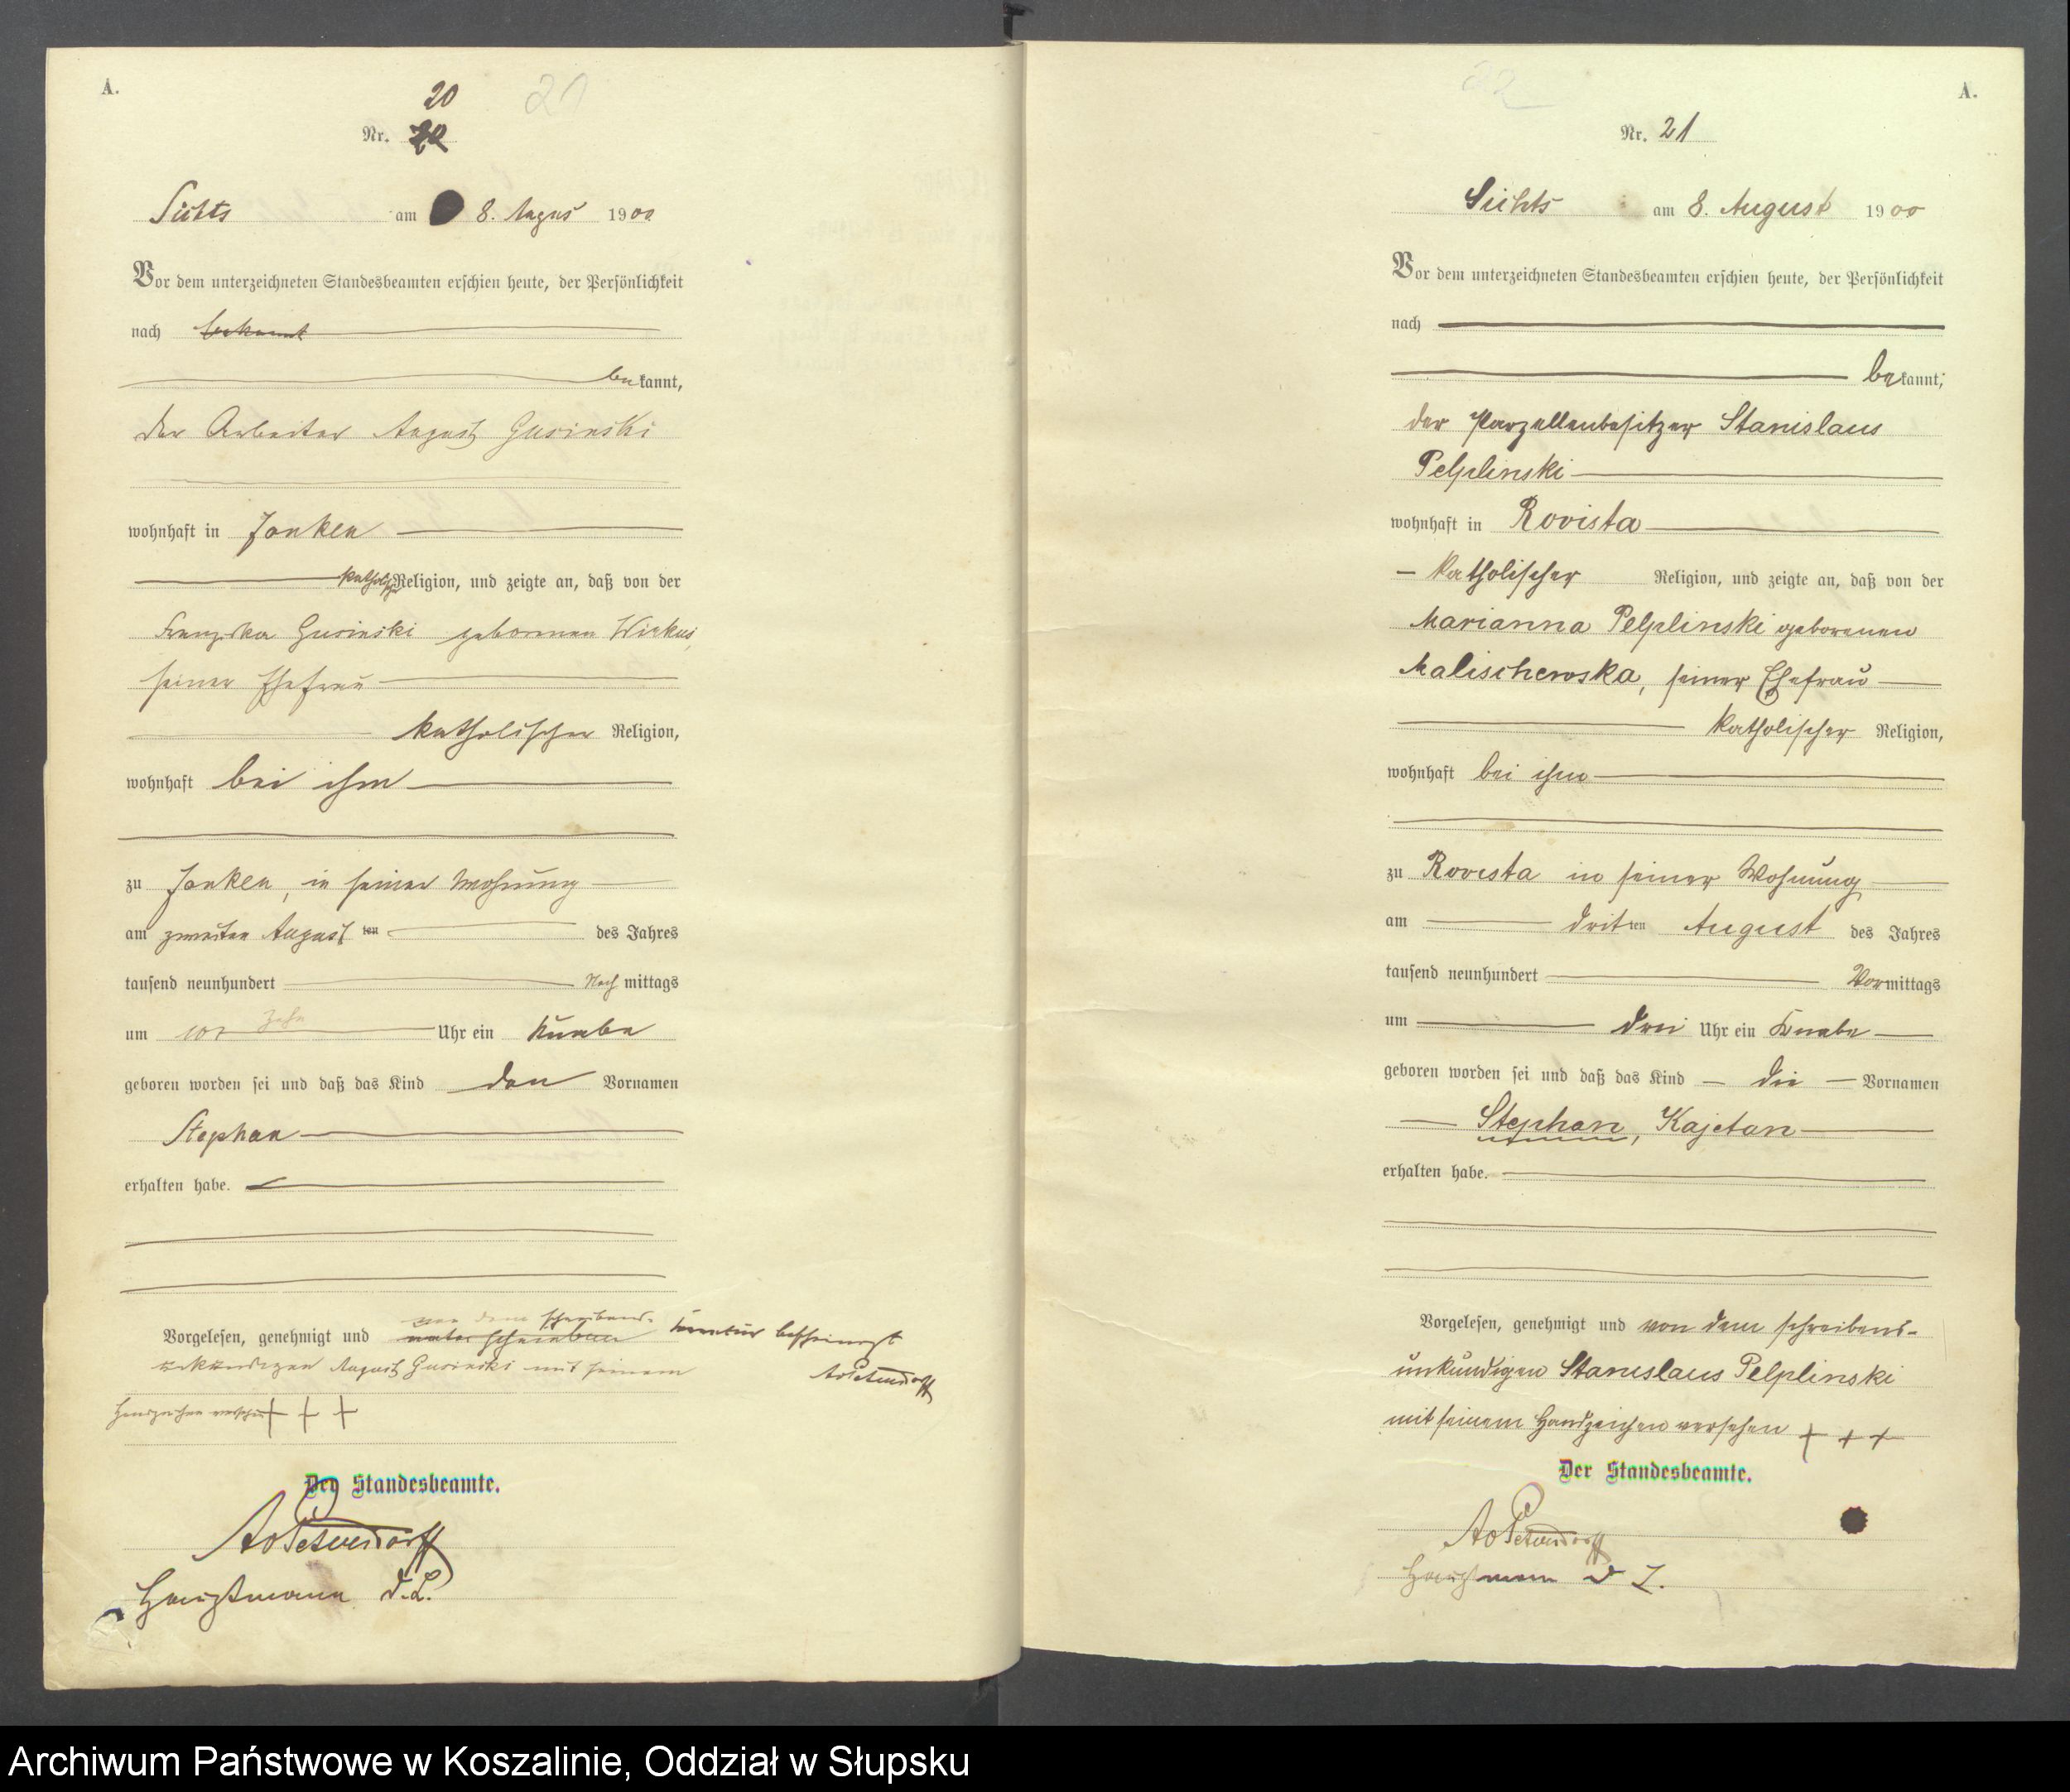 A.
20
21
Nr. 20
am 8. August 1900
Vor dem unterzeichneten Standesbeamten erschien heute, der Persönlichkeit
nach bekannt
bekannt,
der Arbeiter August Gusinski
wohnhaft in Jonken
katholischer Religion, und zeigte an, daß von der
Franziska Gusinski geborenen
seiner Ehefrau
katholischer Religion,
wohnhaft bei ihm
zu Jonken, in seiner Wohnung
am zweiten August ten des Jahres
tausend neunhundert Nachmittags
um zehn Uhr ein Knabe
geboren worden sei und daß das Kind den Vornamen
Stephan
erhalten habe.
von dem schreibens-
Vorgelesen, genehmigt und unterschrieben
unkundigen August Gusinski mit seinem
Handzeichen versehen + + +
Der Standesbeamte.
22
A.
Nr. 21
am 8. August 1900
Vor dem unterzeichneten Standesbeamten erschien heute, der Persönlichkeit
nach
bekannt,
der Parzellenbesitzer Stanislaus
Pelplinski
wohnhaft in Rovista
katholischer Religion, und zeigte an, daß von der
Marianna Pelplinski geborenen
Malischewska, seiner Ehefrau
katholischer Religion,
wohnhaft bei ihm
zu Rovista in seiner Wohnung
am dritten August des Jahres
tausend neunhundert Vormittags
um drei Uhr ein Knabe
geboren worden sei und daß das Kind die Vornamen
Stephan, Kajetan
erhalten habe.
Vorgelesen, genehmigt und von dem schreibens-
unkundigen Stanislaus Pelplinski
mit seinem Handzeichen versehen + + +
Der Standesbeamte.
Archiwum Państwowe w Koszalinie, Oddział w Słupsku